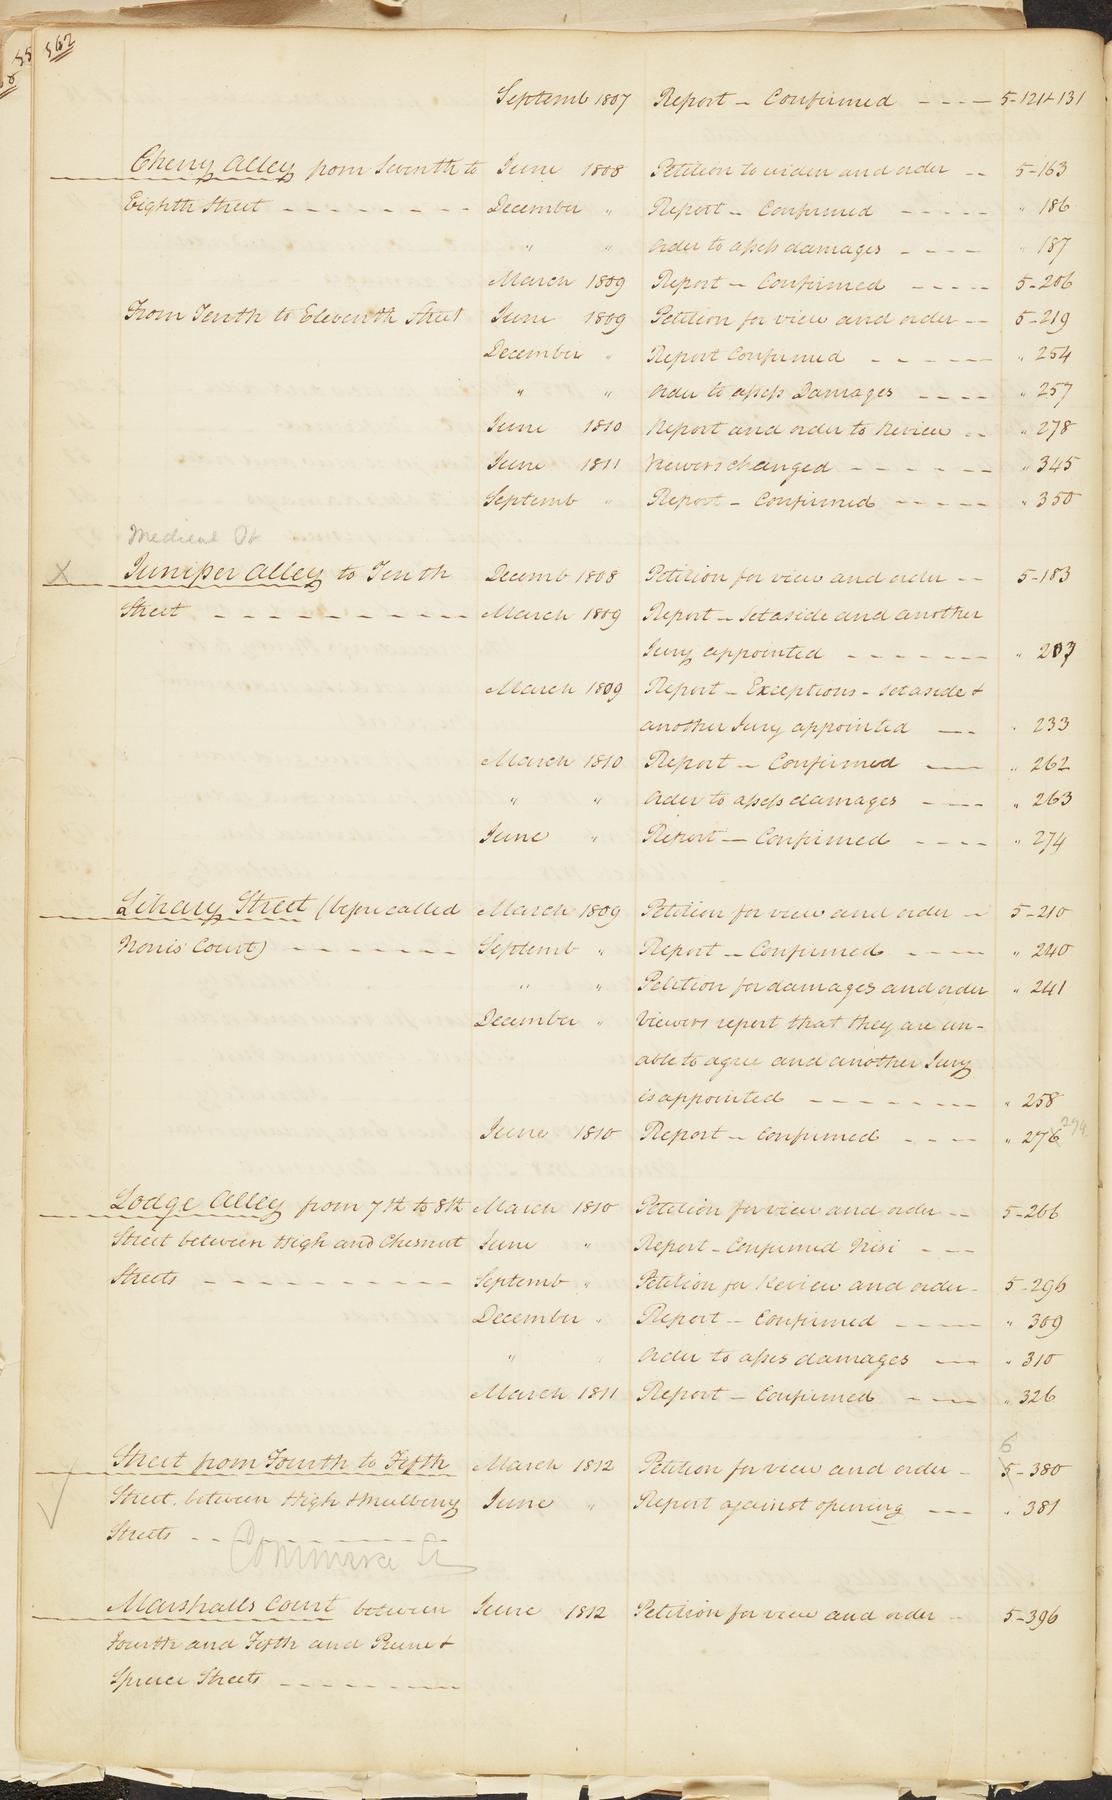 562
Septemb 1807 Report - Confirmed - - - - 5-121 + 131
Cherry Alley from Seventh to June 1808 Petition to widen and order - - 5-163
Eighth Street - - - - - - - - December " Report - Confirmed - - - - - " 186
" " Order to assess damages - - - - " 187
March 1809 Report - Confirmed - - - - - 5-206
From Tenth to Eleventh Street June 1809 Petition for view and order - - 5-219
December " Report Confirmed - - - - - " 254
" " Order to assess Damages - - - - " 257
June 1810 Report and order to Review - - " 278
June 1811 Viewers changed - - - - - - " 345
Septemb " Report - Confirmed - - - - - " 350
Medical St
X Juniper Alley to Tenth Decemb 1808 Petition for view and order - - 5-183
Street - - - - - - - - - - March 1809 Report - Set aside and another
Jury appointed - - - - - - - " 203
March 1809 Report - Exceptions - set aside &
another Jury appointed - - - " 233
March 1810 Report - Confirmed - - - " 262
" " Order to assess damages - - - - " 263
June " Report - Confirmed - - - - " 274
Library Street (before called March 1809 Petition for view and order - 5-210
Norris Court) - - - - - - - Septemb " Report - Confirmed - - - - " 240
" " Petition for damages and order " 241
December " Viewers report that they are un-
able to agree and another Jury
is appointed - - - - - - - - " 258
June 1810 Report - Confirmed - - - - " 276 274
Lodge Alley from 7th to 8th March 1810 Petition for view and order - - 5-266
Street between High and Chesnut June " Report - Confirmed Nisi - - -
Streets - - - - - - - - - - Septemb " Petition for Review and order - 5-296
December " Report - Confirmed - - - - - " 309
" " Order to asses damages - - - " 310
March 1811 Report - Confirmed - - - - " 326
6
Street from Fourth to Fifth March 1812 Petition for view and order - 5-380
Street between High & Mulberry June " Report against opening - - - " 381
Streets - - - - - - - - -
Commerce St
Marshalls Court between June 1812 Petition for view and order - - 5-396
Fourth and Fifth and Prune &
Spruce Streets - - - - - - - - -